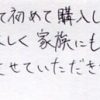 て初めて購入し
しく家族にも
せていただき